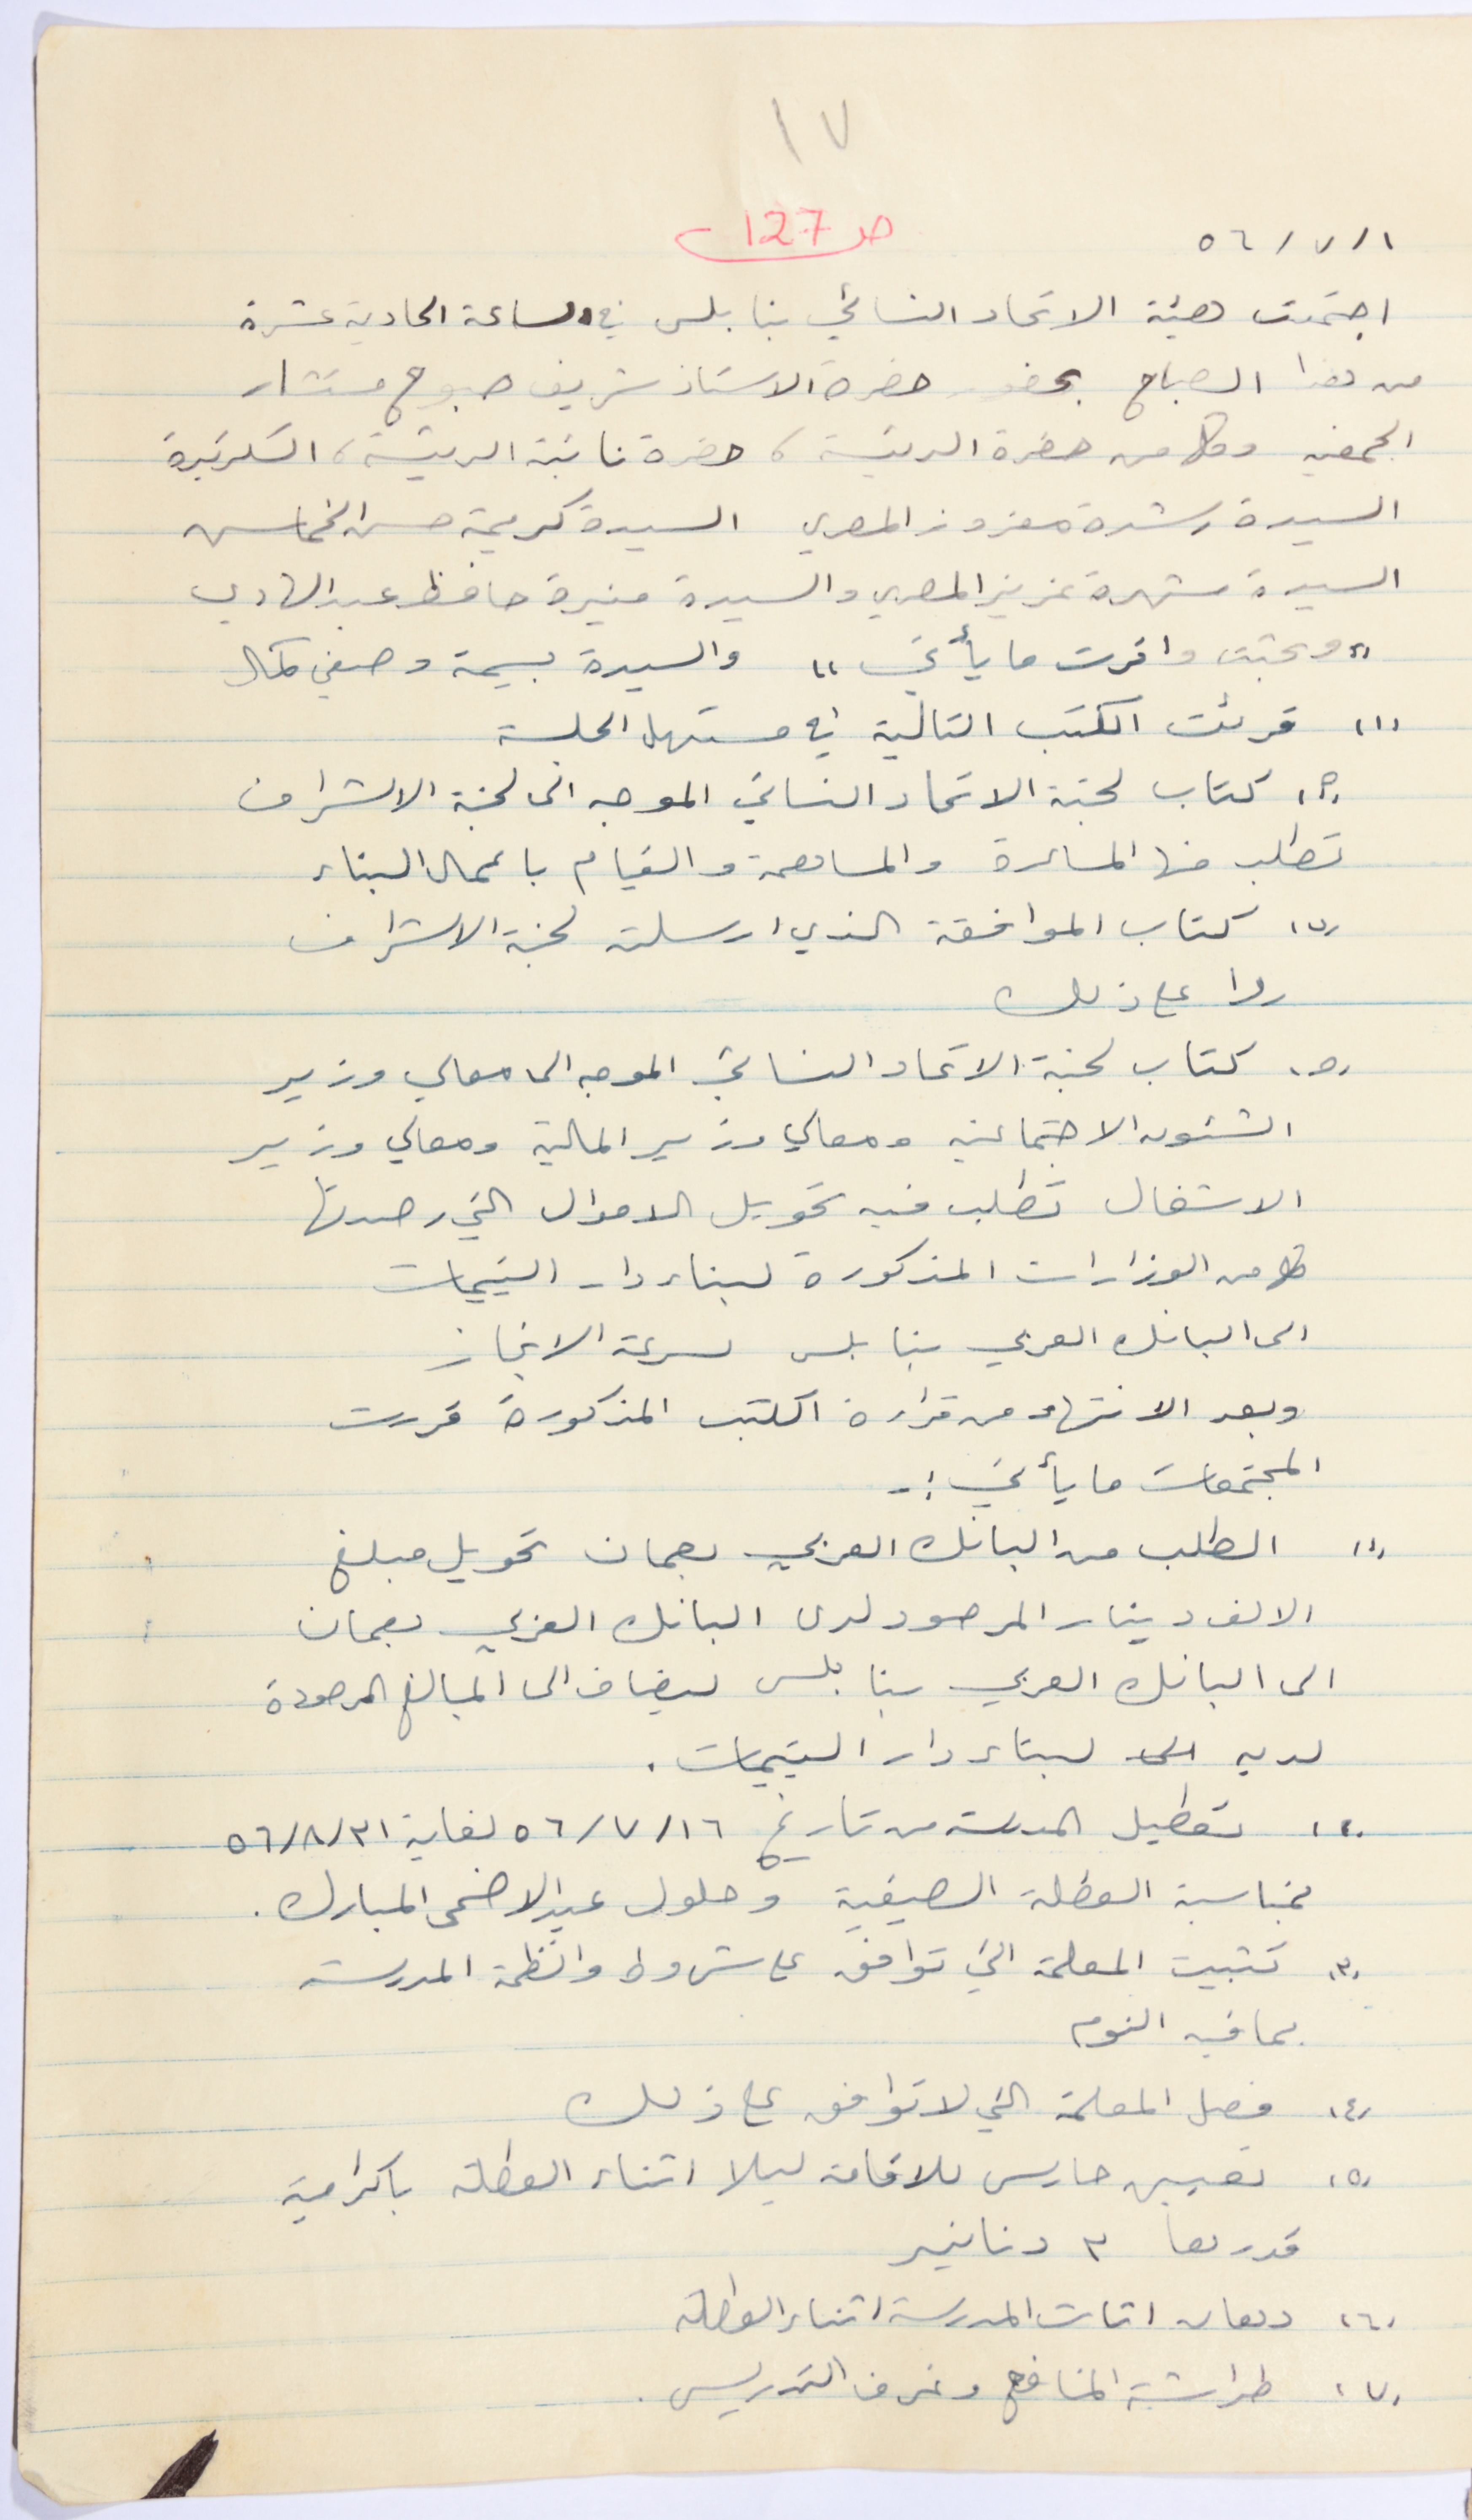 ١٧
ص 127
٥٦/٧/١
اجتمعت هيئة الاتحاد النسائي بنابلس في الساعة الحادية عشرة
من هذا الصباح بحضور حضرة الاستاذ شريف صبوح مستشار
الجمعية وكل من حضرة الرئيسة، حضرة نائبة الرئيسة، السكرتيرة
السيدة رشدة معزوز المصري السيدة كريمة حسن الخماس
السيدة شهرة عزيز المصري والسيدة منيرة حافظ عبد الهادي
"وبحثت واقرت ما يأتي" والسيدة بسيمة وصفي كمال
(١) قرئت الكتب التالية في مستهل الجلسة
(٢) كتاب لجنة الاتحاد النسائي الموجه الى لجنة الاشراف
تطلب منها المساعدة والمساهمة والقيام باعمال البناء
(ب) كتاب الموافقة الذي ارسلته لجنة الاشراف
ردا على ذلك
(ج) كتاب لجنة الاتحاد النسائي الموجه الى معالي وزير
الشئون الاجتماعية ومعالي وزير المالية ومعالي وزير
الاشغال تطلب فيه تحويل الاموال التي رصدتها
كل من الوزارات المذكورة لبناء دار اليتيمات
الى البانك العربي بنابلس لسرعة الانجاز
وبعد الانتهاء من قراءة الكتب المذكورة قررت
المجتمعات ما يأتي :-
(١) الطلب من البانك العربي بعمان تحويل مبلغ
الالف دينار المرصود لدى البانك العربي بعمان
الى البانك العربي بنابلس ليضاف الى المبالغ المرصودة
لديه لبناء دار اليتيمات.
(٢) تعطيل المدرسة من تاريخ ٥٦/٧/١٦ لغاية ٥٦/٨/٣١
بمناسبة العطلة الصيفية وحلول عيد الاضحى المبارك.
(٣) تثبيت المعلمة التي توافق على شروط وانظمة المدرسة
بما فيه النوم
(٤) فصل المعلمة التي لا توافق على ذلك
(٥) تعيين حارس للاقامة ليلا اثناء العطلة باكرامية
قدرها ٣ دنانير
(٦) دهان اثاث المدرسة اثناء العطلة
(٧) طراشة المنافع وغرف التدريس.